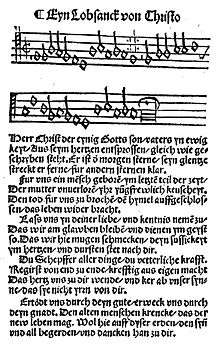 ¶ Eyn Lobsanck von Christo
Herr Christ der eynig Gotts son / vaters yn ewig
keyt / Aus seym hertzen entsprossen / gleich wie ge-
schryben steht. Er ist ď morgen sterne / seyn glentze
streckt er ferne / fur andern sternen klar.
Fur uns eyn mensch geborn / ym letzte teil der zeyt /
Der mutter unverlorn / yhr yungfrewlich keuscheyt.
Den tod fur uns zu broche / dē hymel auffgeschlos-
sen / das leben wider bracht.
Lass uns yn deiner liebe / und kentnis nemē zu /
Das wir am glawben bleibē / und dienen ym geyst
so. Das wir hie mugen schmecken / deyn sussickeyt
ym hertzen / und dursten stet nach dir.
Du Schepffer aller dinge / du vetterliche krafft.
Regirst von end zu ende / krefftig aus eigen macht
Das hertz uns zu dir wende / und ker ab unser synn-
ne / das sye nicht yrrn von dir.
Ertödt uns durch deyn gute / erweck uns durch
deyn gnadt. Den alten menschen krencke / das der
new leben mag. Wol hie auff dyser erden / den syn
und all begerden / und dancken han zu dir.